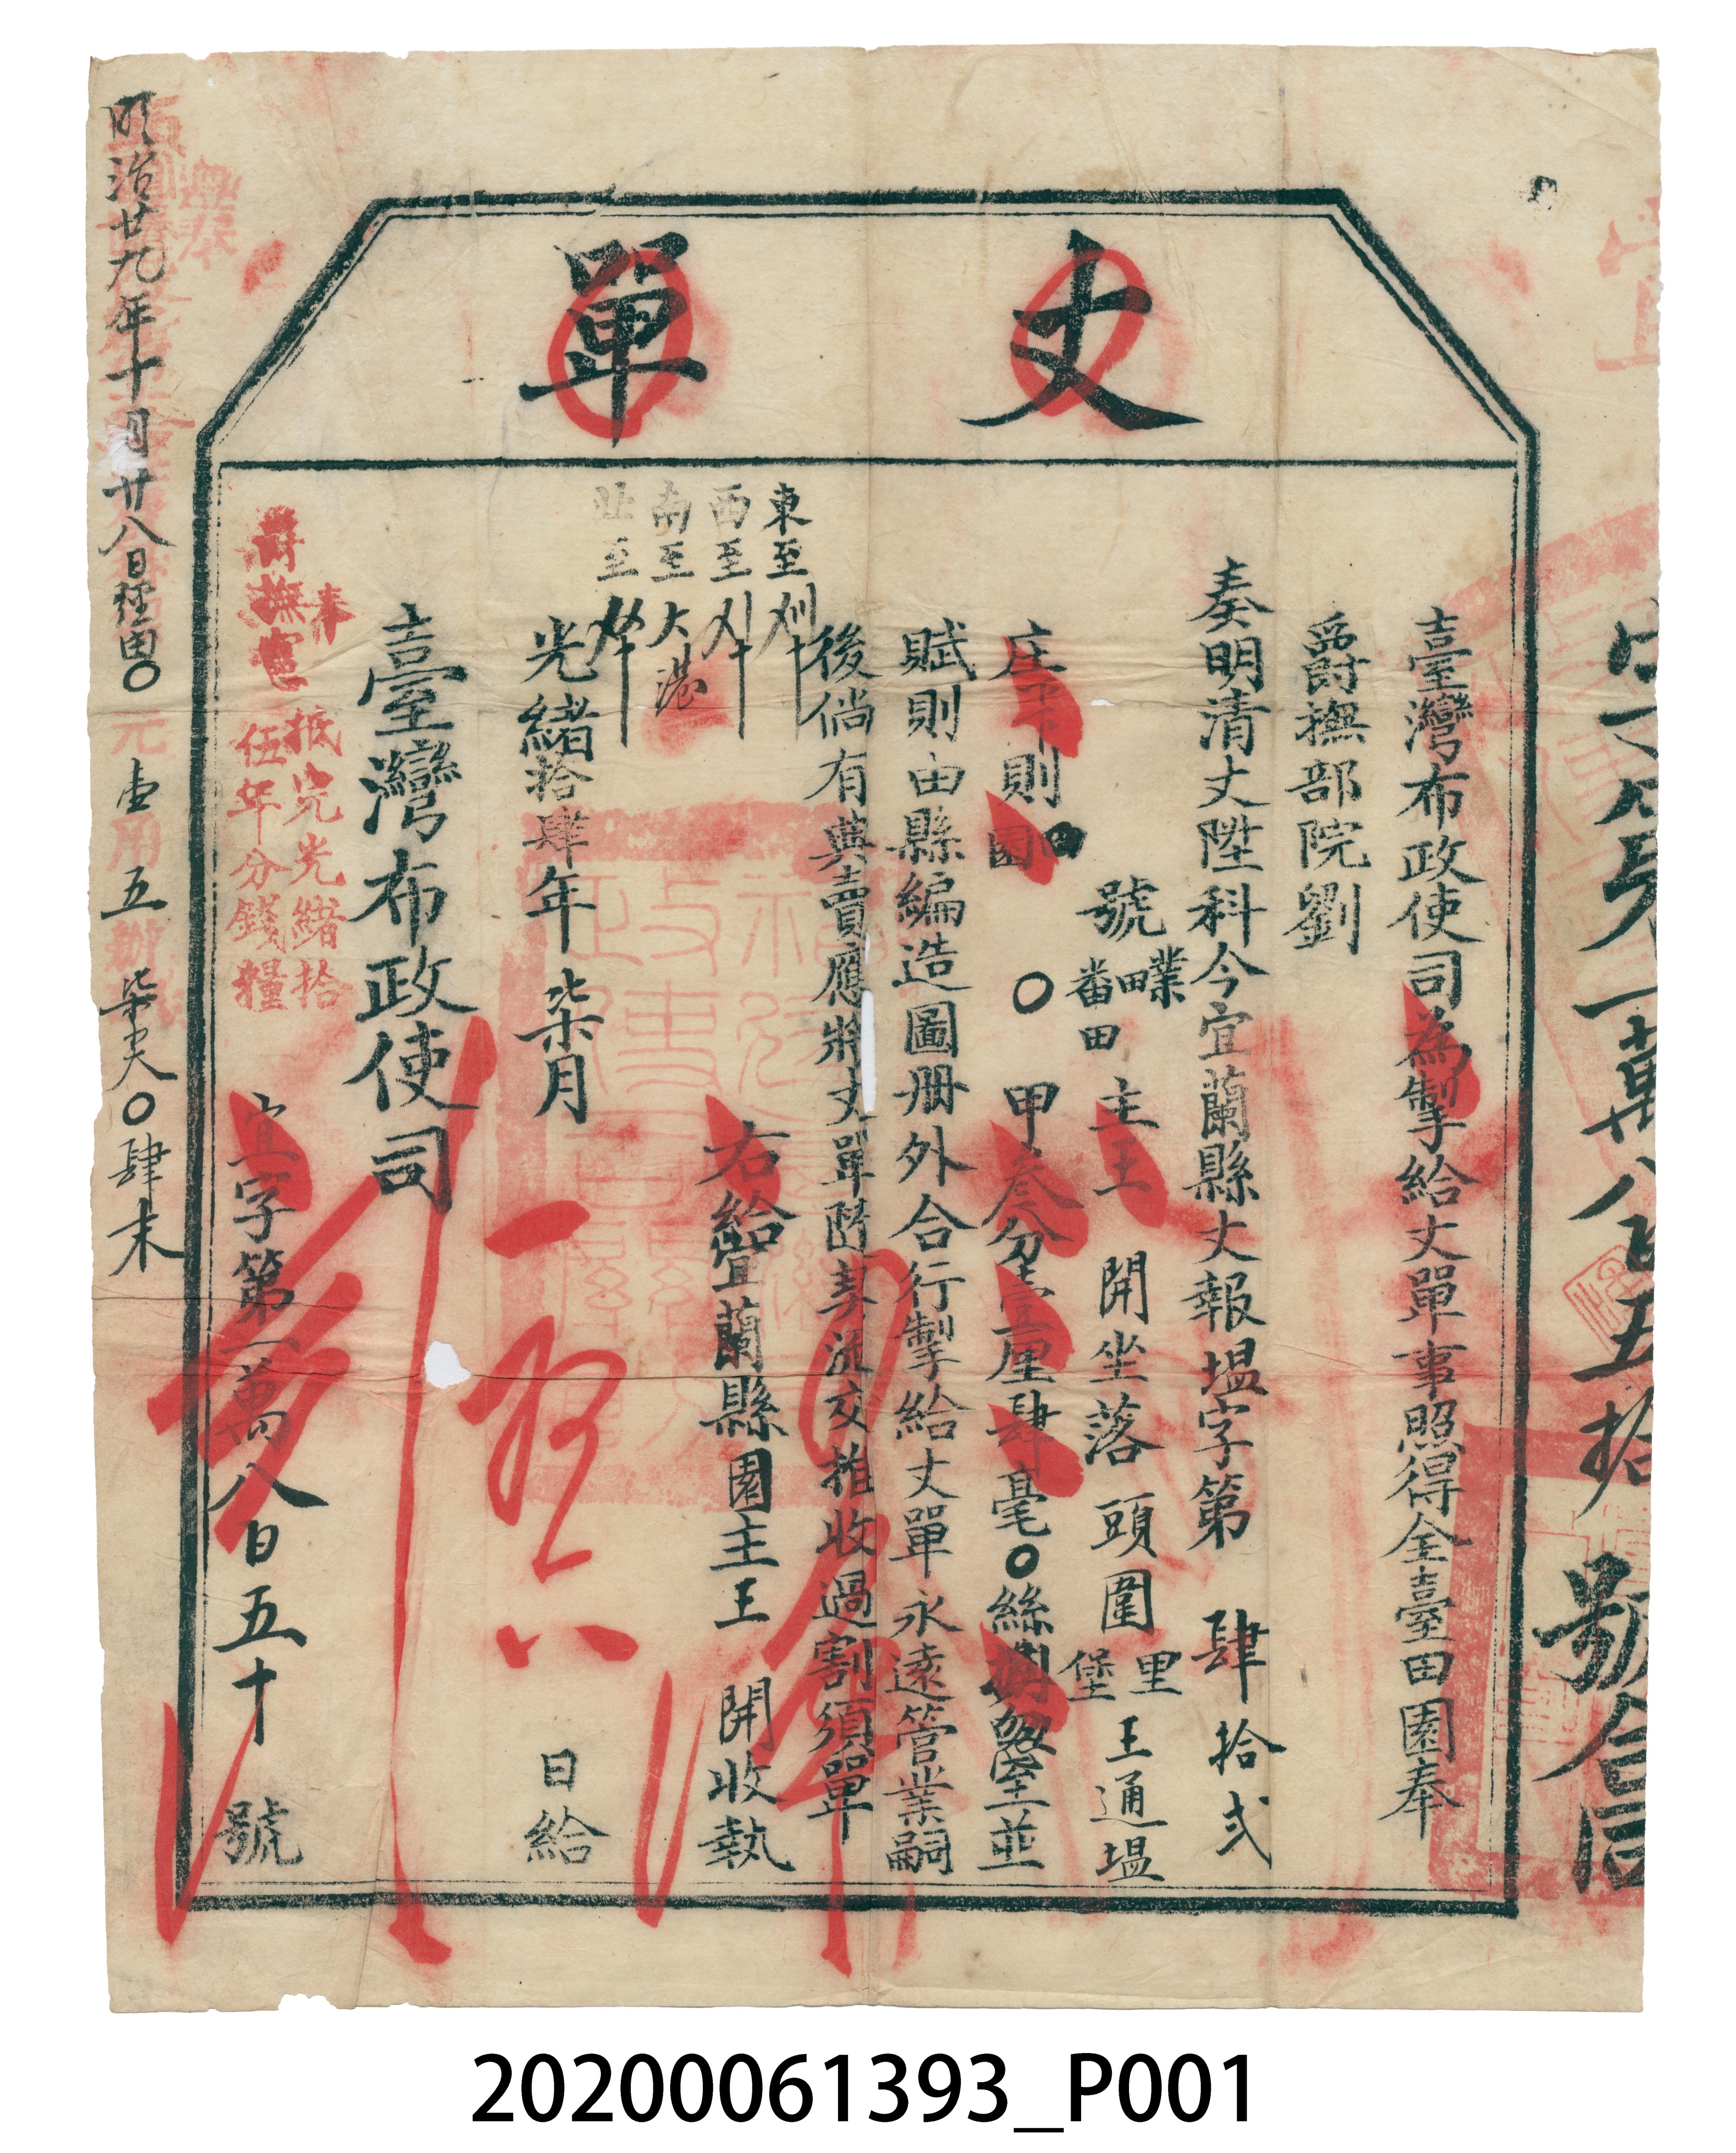 丈單
臺灣布政使司為掣給丈單事照得全臺田園奉
爵撫部院劉
奏明清丈陞科今宜蘭縣丈報塭字第肆拾弍
號業主王開坐落頭圍里堡王通塭
番田
庄下則園田〇甲叁分壹厘肆毫〇絲
並
賦則由縣編造圖冊外合行掣給丈單永遠管業嗣
後倘有典賣應將丈單隨契流交推收過割須單
右給宜蘭縣園主王開收執
東至圳
西至圳
南至大港
北至
光緒拾肆年柒月日給
臺灣布政使司
奉
爵撫憲
抵完光緒拾
伍年分錢糧
宜字第一萬八百五十號
明治廿九年十月廿八日經由〇元壹角五辦柒尖〇肆末
字第一萬八百五拾號
20200061393_P001